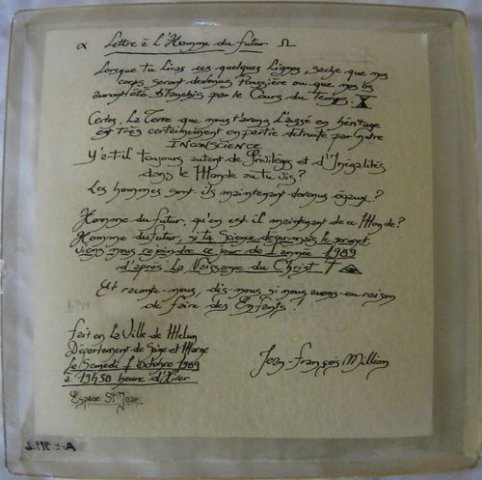 α Lettre à l'Homme du futur Ω
Lorsque tu Liras ces quelques Lignes, sache que nos
corps seront devenus Poussière ou que nos os
auront été blanchis par le Cours du Temps. X
Certes, La Terre que nous t'avons Laissé en héritage
est Très certainement en partie detruite par notre
INCONSCIENCE.
Y a-t-il Toujours autant de Privilèges et d'Inégalités
dans le Monde ou tu vis?
Les hommes sont ils maintenant devenus égaux?
Homme du futur, qu'en est il maintenant de ce Monde?
Homme du futur, si ta Science desormais le permet,
viens nous rejoindre ce jour de L'année 1989
d'après La Naissance du Christ †
Et raconte-nous, dis-nous si nous avons eu raison
de faire des Enfants!
fait en La Ville de Melun
Département de Seine et Marne
Le Samedi 1 Octobre 1989
à 19h38 heure d'Hiver
Espace St Jean
Jean-François Million
n°1